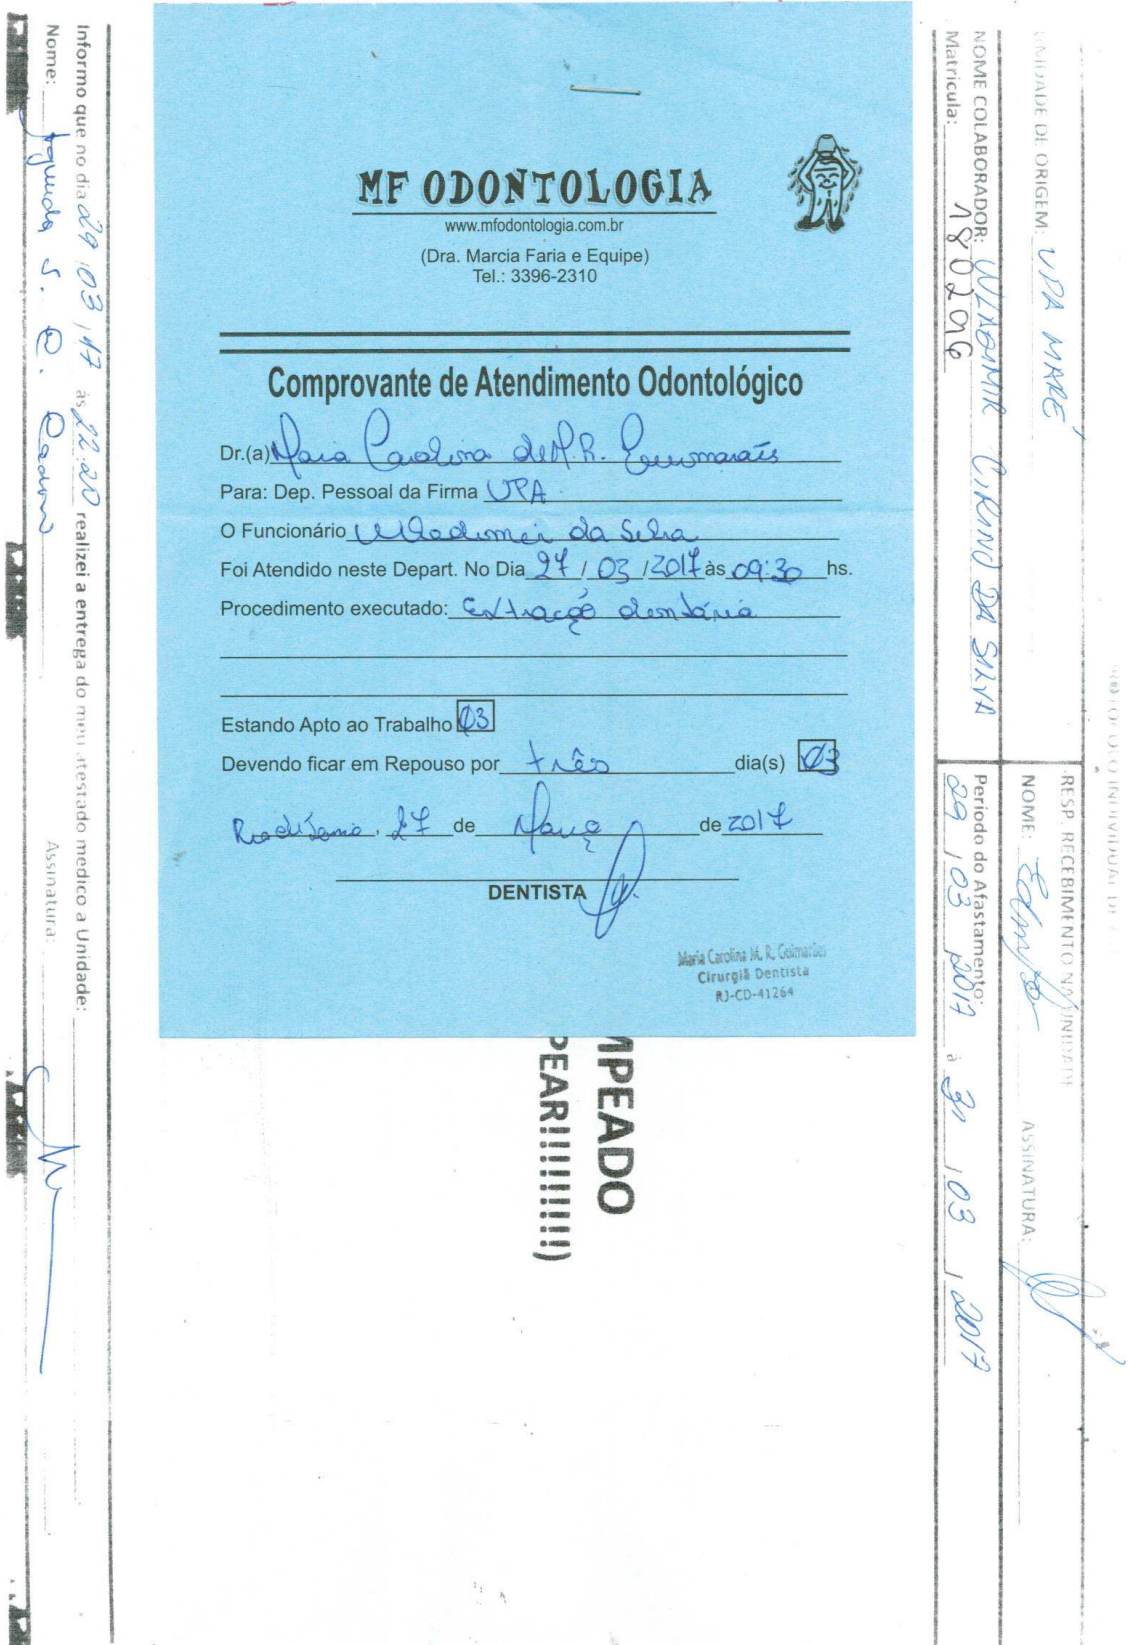 MF ODONTOLOGIA
www.mfodontologia.com.br
(Dra. Marcia Faria e Equipe)
Tel.: 3396-2310
Comprovante de Atendimento Odontológico
Dr.(a) Maria Carolina de M. R. Guimarães
Para: Dep. Pessoal da Firma UPA
O Funcionário Wladimir da Silva
Foi Atendido neste Depart. No Dia 27 / 03 / 2017 às 09:30 hs.
Procedimento executado: Extração dentária
Estando Apto ao Trabalho 03
Devendo ficar em Repouso por três dia(s) 03
Rio de Janeiro, 27 de Março de 2017
DENTISTA
Maria Carolina M. R. Guimarães
Cirurgiã Dentista
RJ-CD-41264
MPEADO
PEAR!!!!!!!!!)
PROTOCOLO INDIVIDUAL DE
UNIDADE DE ORIGEM: UPA MARÉ
RESP. RECEBIMENTO NA UNIDADE
NOME: ASSINATURA:
NOME COLABORADOR: WLADIMIR CIRINO DA SILVA
Matricula: 180296
Periodo do Afastamento:
29 / 03 / 2017 à 31 / 03 / 2017
Informo que no dia 29 / 03 / 17 às 22:20 realizei a entrega do meu atestado medico a Unidade:
Nome: S. Assinatura: